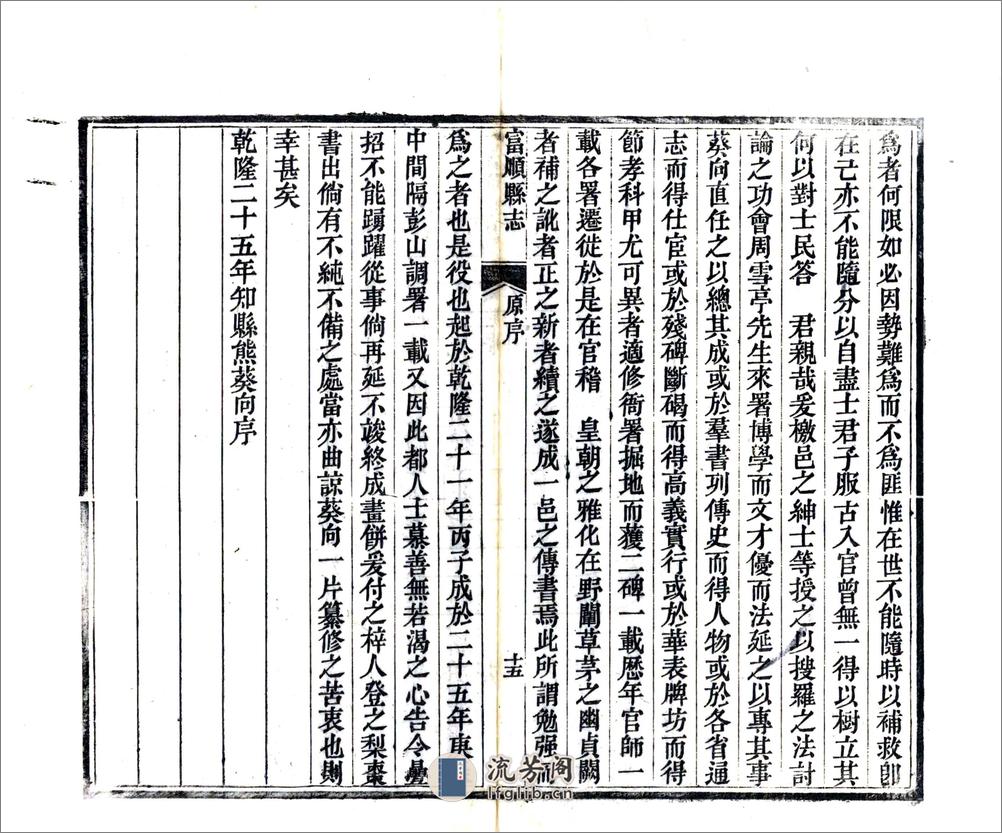 爲者何限如必因勢難爲而不爲匪惟在世不能隨時以補救卽
在己亦不能隨分以自盡士君子服古入官曾無一得以樹立其
何以對士民答　君親哉爰檄邑之紳士等授之以搜羅之法討
論之功會周雪亭先生來署博學而文才優而法延之以專其事
葵向直任之以總其成或於羣書列傳史而得人物或於各省通
志而得仕宦或於殘碑斷碣而得高義實行或於華表牌坊而得
節孝科甲尤可異者適修衙署掘地而獲二碑一載歷年官師一
載各署遷徙於是在官稽　皇朝之雅化在野闡草茅之幽貞闕
者補之訛者正之新者續之遂成一邑之傳書焉此所謂勉强而
富順縣志　原序　十五
爲之者也是役也起於乾隆二十一年丙子成於二十五年庚
中間隔彭山調署一載又因此都人士慕善無若渴之心告令
招不能踴躍從事倘再延不竣終成畫餅爰付之梓人登之梨棗
書出倘有不純不備之處當亦曲諒葵向一片纂修之苦衷也則
幸甚矣
乾隆二十五年知縣熊葵向序
流芳閣
lfglib.cn